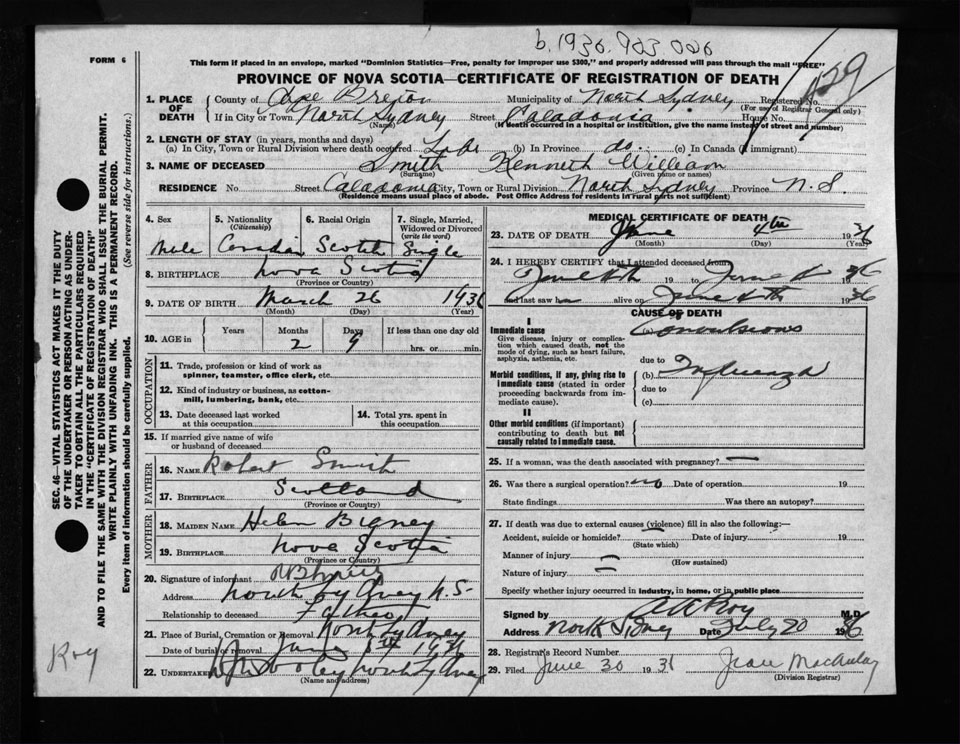 b. 1936. 923.026
129
FORM 6
This form if placed in an envelope, marked "Dominion Statistics—Free, penalty for improper use $300," and properly addressed will pass through the mail "FREE"
PROVINCE OF NOVA SCOTIA—CERTIFICATE OF REGISTRATION OF DEATH
SEC. 46—VITAL STATISTICS ACT MAKES IT THE DUTY
OF THE UNDERTAKER OR PERSON ACTING AS UNDER-
TAKER TO OBTAIN ALL THE PARTICULARS REQUIRED
IN THE "CERTIFICATE OF REGISTRATION OF DEATH"
AND TO FILE THE SAME WITH THE DIVISION REGISTRAR WHO SHALL ISSUE THE BURIAL PERMIT.
WRITE PLAINLY WITH UNFADING INK. THIS IS A PERMANENT RECORD.
Every item of information should be carefully supplied. (See reverse side for instructions.)
1. PLACE OF DEATH County of Cape Breton Municipality of North Sydney Registered No.
(For use of Registrar General only)
If in City or Town North Sydney Street Caladonia House No.
(Name) (If death occurred in a hospital or institution, give the name instead of street and number)
2. LENGTH OF STAY (in years, months and days)
(a) In City, Town or Rural Division where death occurred Life (b) In Province do. (c) In Canada (if immigrant)
3. NAME OF DECEASED Smith Kenneth William
(Surname) (Given name or names)
RESIDENCE No. Street Caladonia City, Town or Rural Division North Sydney Province N. S.
(Residence means usual place of abode. Post Office Address for residents in rural parts not sufficient)
4. Sex 5. Nationality (Citizenship) 6. Racial Origin 7. Single, Married, Widowed or Divorced (write the word)
Male Canadian Scotch Single
8. BIRTHPLACE Nova Scotia
(Province or Country)
9. DATE OF BIRTH March 26 1936
(Month) (Day) (Year)
10. AGE in Years Months Days If less than one day old
2 9 hrs. or min.
OCCUPATION
11. Trade, profession or kind of work as spinner, teamster, office clerk, etc.
12. Kind of industry or business, as cotton-mill, lumbering, bank, etc.
13. Date deceased last worked at this occupation 14. Total yrs. spent in this occupation
15. If married give name of wife or husband of deceased
FATHER
16. NAME Robert Smith
17. BIRTHPLACE Scotland
(Province or Country)
MOTHER
18. MAIDEN NAME Helen Bigney
19. BIRTHPLACE Nova Scotia
(Province or Country)
20. Signature of informant
Address North Sydney N. S.
Relationship to deceased Father
21. Place of Burial, Cremation or Removal North Sydney
Date of burial or removal June 1936
22. UNDERTAKER North Sydney
(Name and address)
Roy
MEDICAL CERTIFICATE OF DEATH
23. DATE OF DEATH June 4th 1936
(Month) (Day) (Year)
24. I HEREBY CERTIFY that I attended deceased from
June 4th 19 to June 4 1936
and last saw h alive on June 4th 1936
CAUSE OF DEATH
I
Immediate cause (a) Convulsions
Give disease, injury or complication which caused death, not the mode of dying, such as heart failure, asphyxia, asthenia, etc.
due to
Morbid conditions, if any, giving rise to immediate cause (stated in order proceeding backwards from immediate cause).
(b) Influenza
due to
(c)
II
Other morbid conditions (if important) contributing to death but not causally related to immediate cause.
25. If a woman, was the death associated with pregnancy? —
26. Was there a surgical operation? no Date of operation 19
State findings Was there an autopsy?
27. If death was due to external causes (violence) fill in also the following:—
Accident, suicide or homicide? Date of injury 19
(State which)
Manner of injury —
(How sustained)
Nature of injury —
Specify whether injury occurred in industry, in home, or in public place
Signed by A A Roy M.D.
Address North Sidney Date July 20 1936
28. Registrar's Record Number
29. Filed June 30 1931 Jean MacAulay
(Division Registrar)